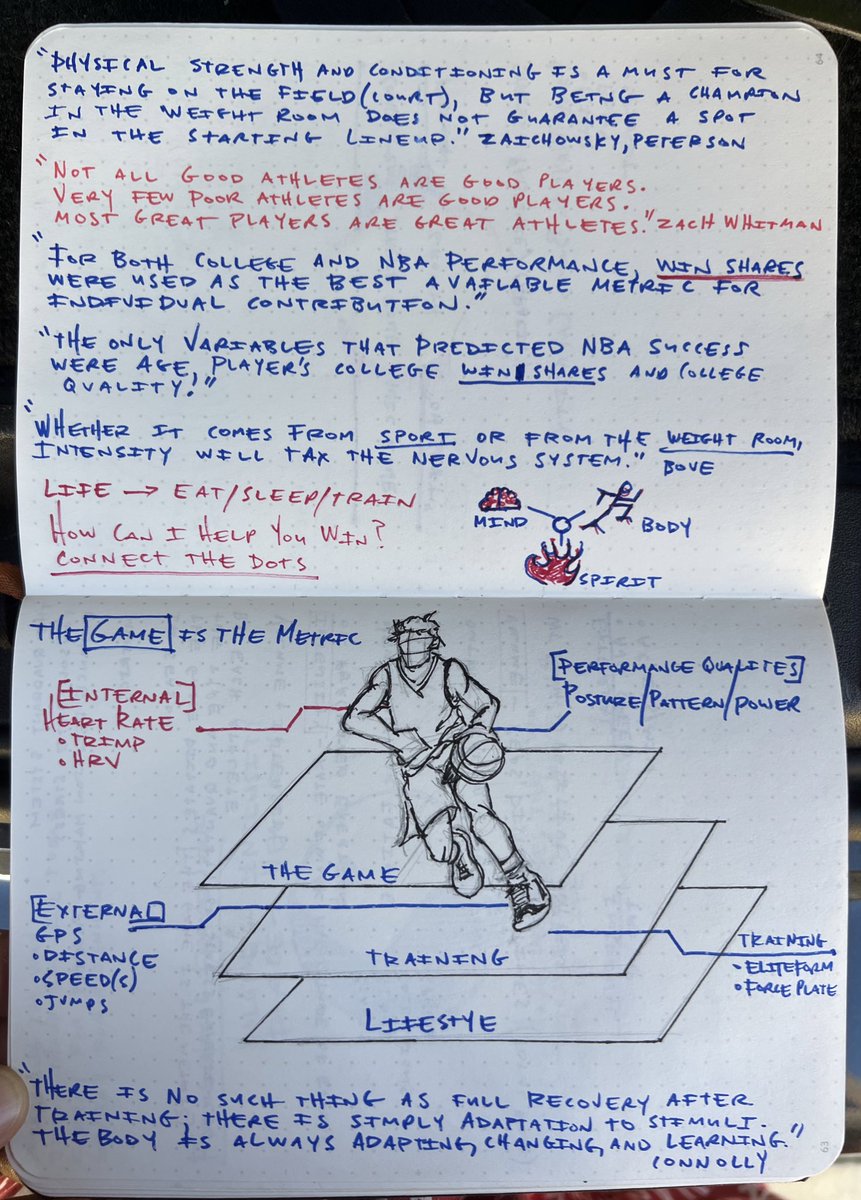 "PHYSICAL STRENGTH AND CONDITIONING IS A MUST FOR
STAYING ON THE FIELD (COURT), BUT BEING A CHAMPION
IN THE WEIGHT ROOM DOES NOT GUARANTEE A SPOT
IN THE STARTING LINEUP." ZAICHOWSKY, PETERSON
"NOT ALL GOOD ATHLETES ARE GOOD PLAYERS.
VERY FEW POOR ATHLETES ARE GOOD PLAYERS.
MOST GREAT PLAYERS ARE GREAT ATHLETES." ZACH WHITMAN
"FOR BOTH COLLEGE AND NBA PERFORMANCE, WIN SHARES
WERE USED AS THE BEST AVAILABLE METRIC FOR
INDIVIDUAL CONTRIBUTION."
"THE ONLY VARIABLES THAT PREDICTED NBA SUCCESS
WERE AGE, PLAYER'S COLLEGE WIN SHARES AND COLLEGE
QUALITY!"
"WHETHER IT COMES FROM SPORT OR FROM THE WEIGHT ROOM,
INTENSITY WILL TAX THE NERVOUS SYSTEM." BOVE
LIFE → EAT/SLEEP/TRAIN
HOW CAN I HELP YOU WIN?
CONNECT THE DOTS
MIND
BODY
SPIRIT
THE GAME IS THE METRIC
[INTERNAL]
HEART RATE
• TRIMP
• HRV
[PERFORMANCE QUALITES]
POSTURE/PATTERN/POWER
THE GAME
[EXTERNAL]
GPS
• DISTANCE
• SPEED(S)
• JUMPS
TRAINING
TRAINING
• ELITEFORM
• FORCE PLATE
LIFESTYE
"THERE IS NO SUCH THING AS FULL RECOVERY AFTER
TRAINING; THERE IS SIMPLY ADAPTATION TO STIMULI.
THE BODY IS ALWAYS ADAPTING, CHANGING, AND LEARNING."
CONNOLLY
63